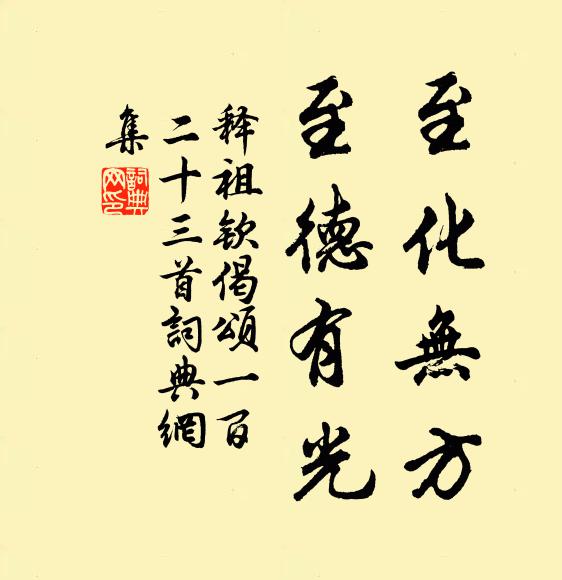 至化無方
至德有光
释祖钦偈頌一百
二十三首詞典網
集
詞典
网印